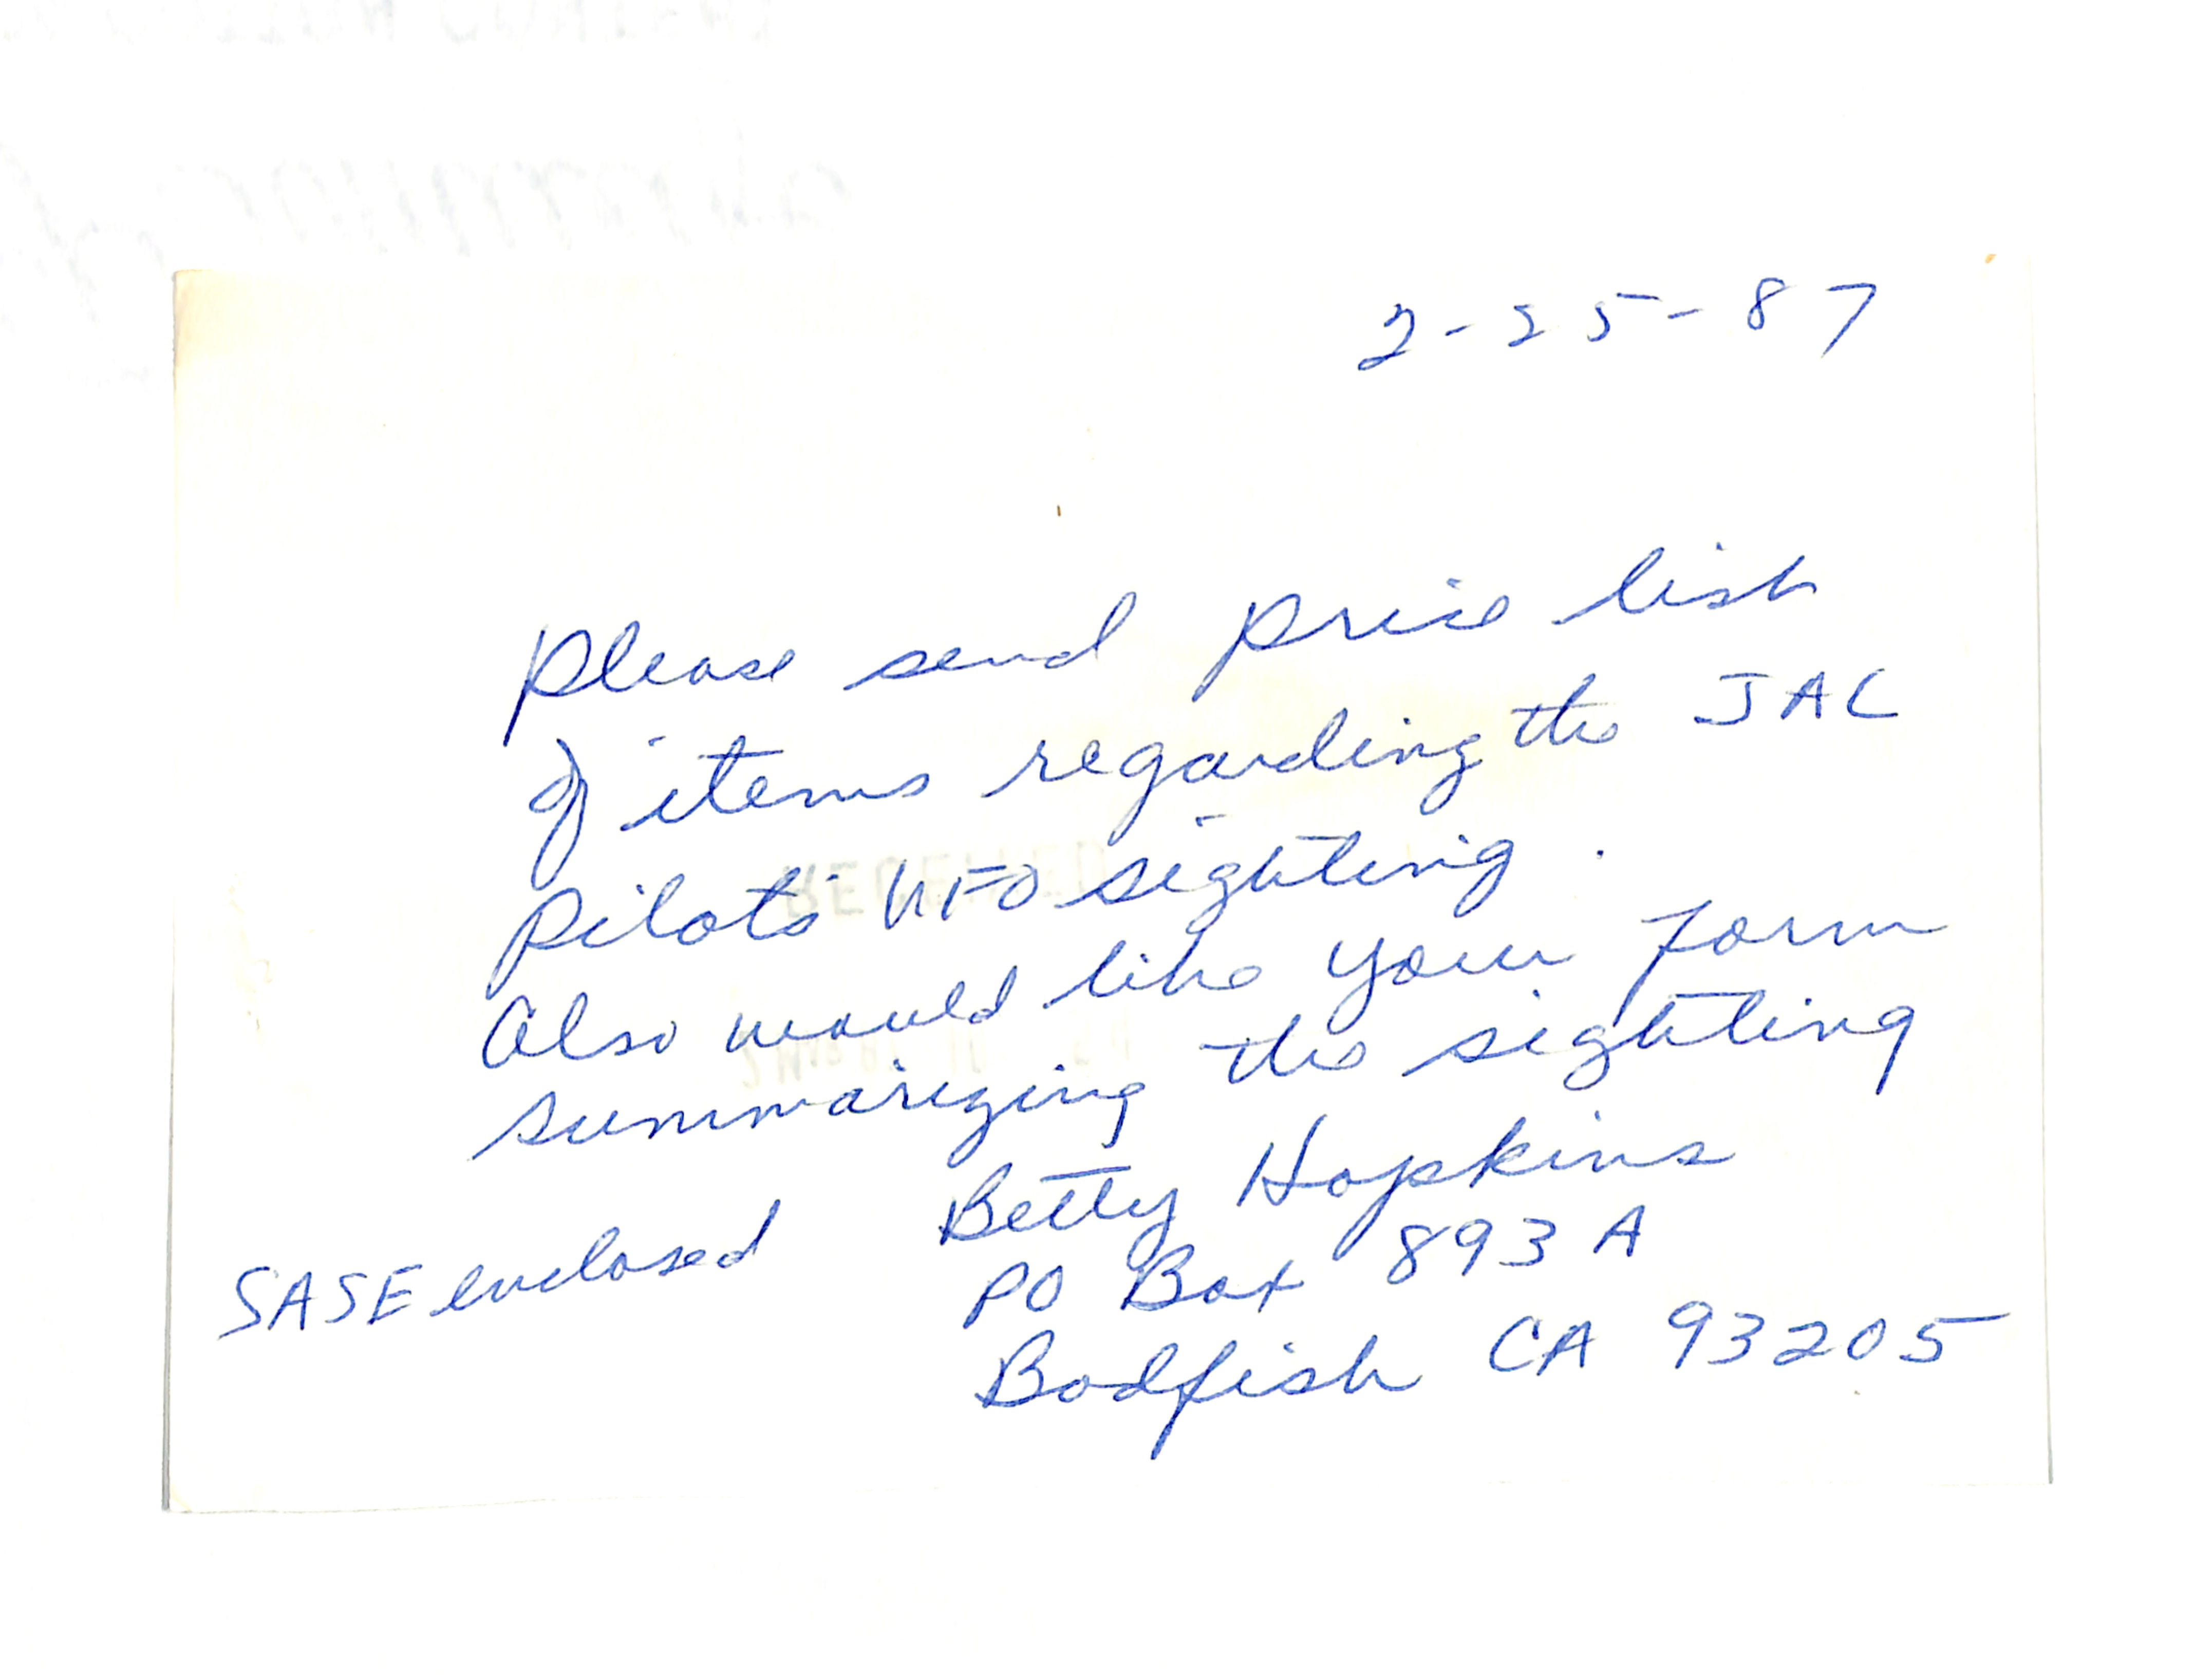 2-25-87
Please send price list
of items regarding the JAL
pilots UFO sighting.
Also would like your form
summarizing the sighting
Betty Hopkins
SASE enclosed
PO Box 893 A
Bodfish CA 93205
RECEIVED